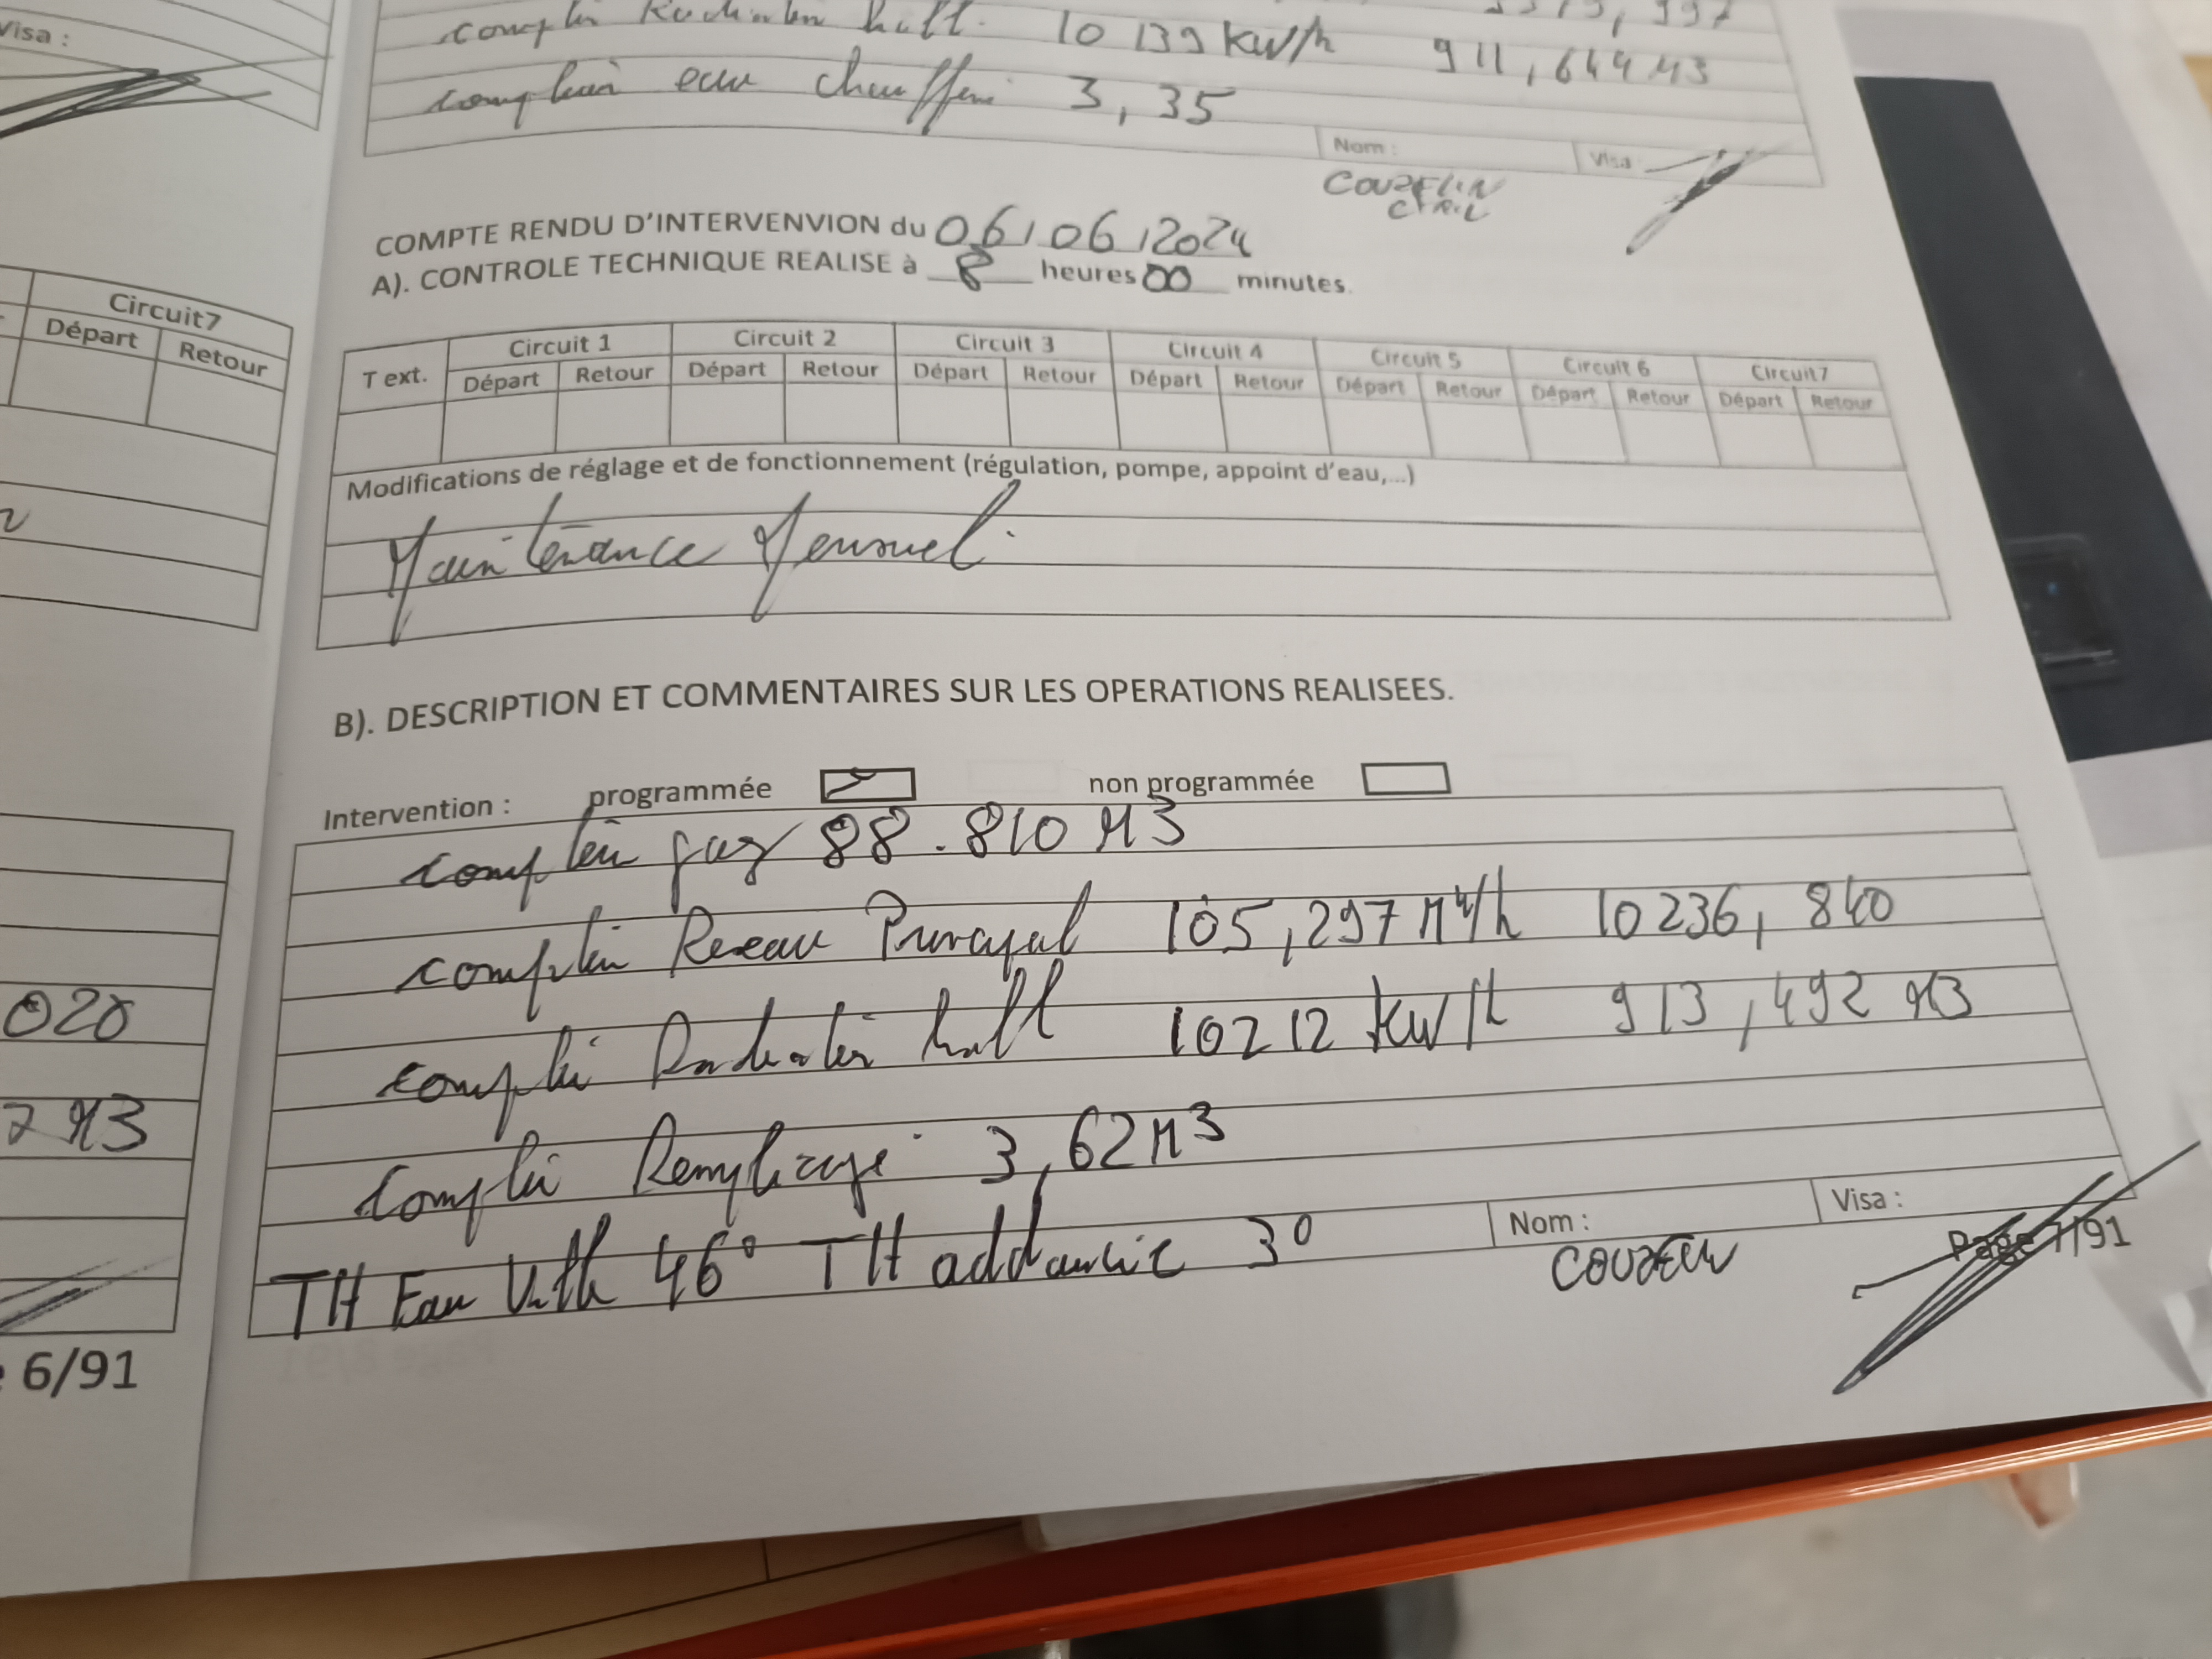 Visa :
compteur Radiateur hall. 10 139 kW/h 911,644 M3
compteur eau chaufferie 3,35
Nom : Visa
COUZELIN
CYRIL
COMPTE RENDU D'INTERVENVION du 06/06/2024
A). CONTROLE TECHNIQUE REALISE à 8 heures 00 minutes.
Circuit7
Départ Retour
T ext. Circuit 1 Circuit 2 Circuit 3 Circuit 4 Circuit 5 Circuit 6 Circuit7
Départ Retour Départ Retour Départ Retour Départ Retour Départ Retour Départ Retour Départ Retour
Modifications de réglage et de fonctionnement (régulation, pompe, appoint d'eau,...)
Maintenance Mensuel.
B). DESCRIPTION ET COMMENTAIRES SUR LES OPERATIONS REALISEES.
Intervention : programmée non programmée
compteur gaz 88.810 M3
compteur Reseau Principal 105,297 MW/h 10236, 840
compteur Radiateur hall 10212 kW/h 913,492 M3
compteur Remplissage 3,62 M3
TH Eau Ville 46° TH adoucie 3°
Nom : Visa :
Page 7/91
020
7 M3
6/91